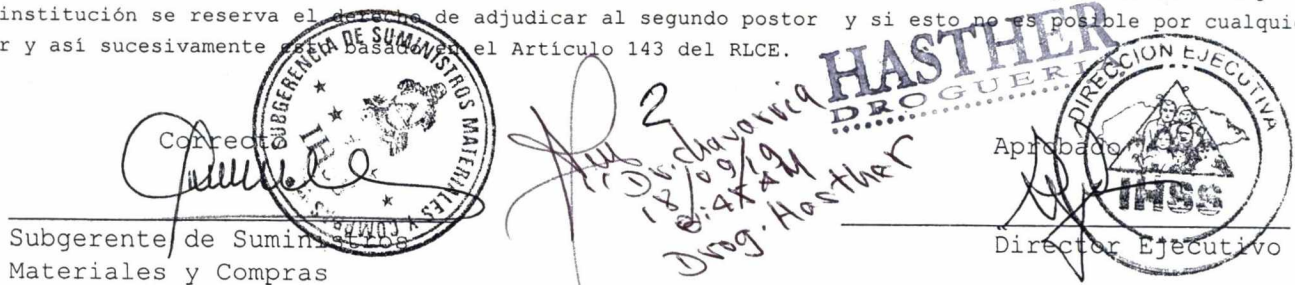 institución se reserva el derecho de adjudicar al segundo postor y si esto no es posible por cualqui
r y así sucesivamente basado en el Artículo 143 del RLCE.
SUBGERENCIA DE SUMINISTROS MATERIALES Y COMPRAS
HASTHER
DROGUERIA
DIRECCION EJECUTIVA
IHSS
Correcto
Dr. Chavarria
18/09/19
Drog. Hasther
Aprobado
Subgerente de Suministros
Materiales y Compras
Director Ejecutivo